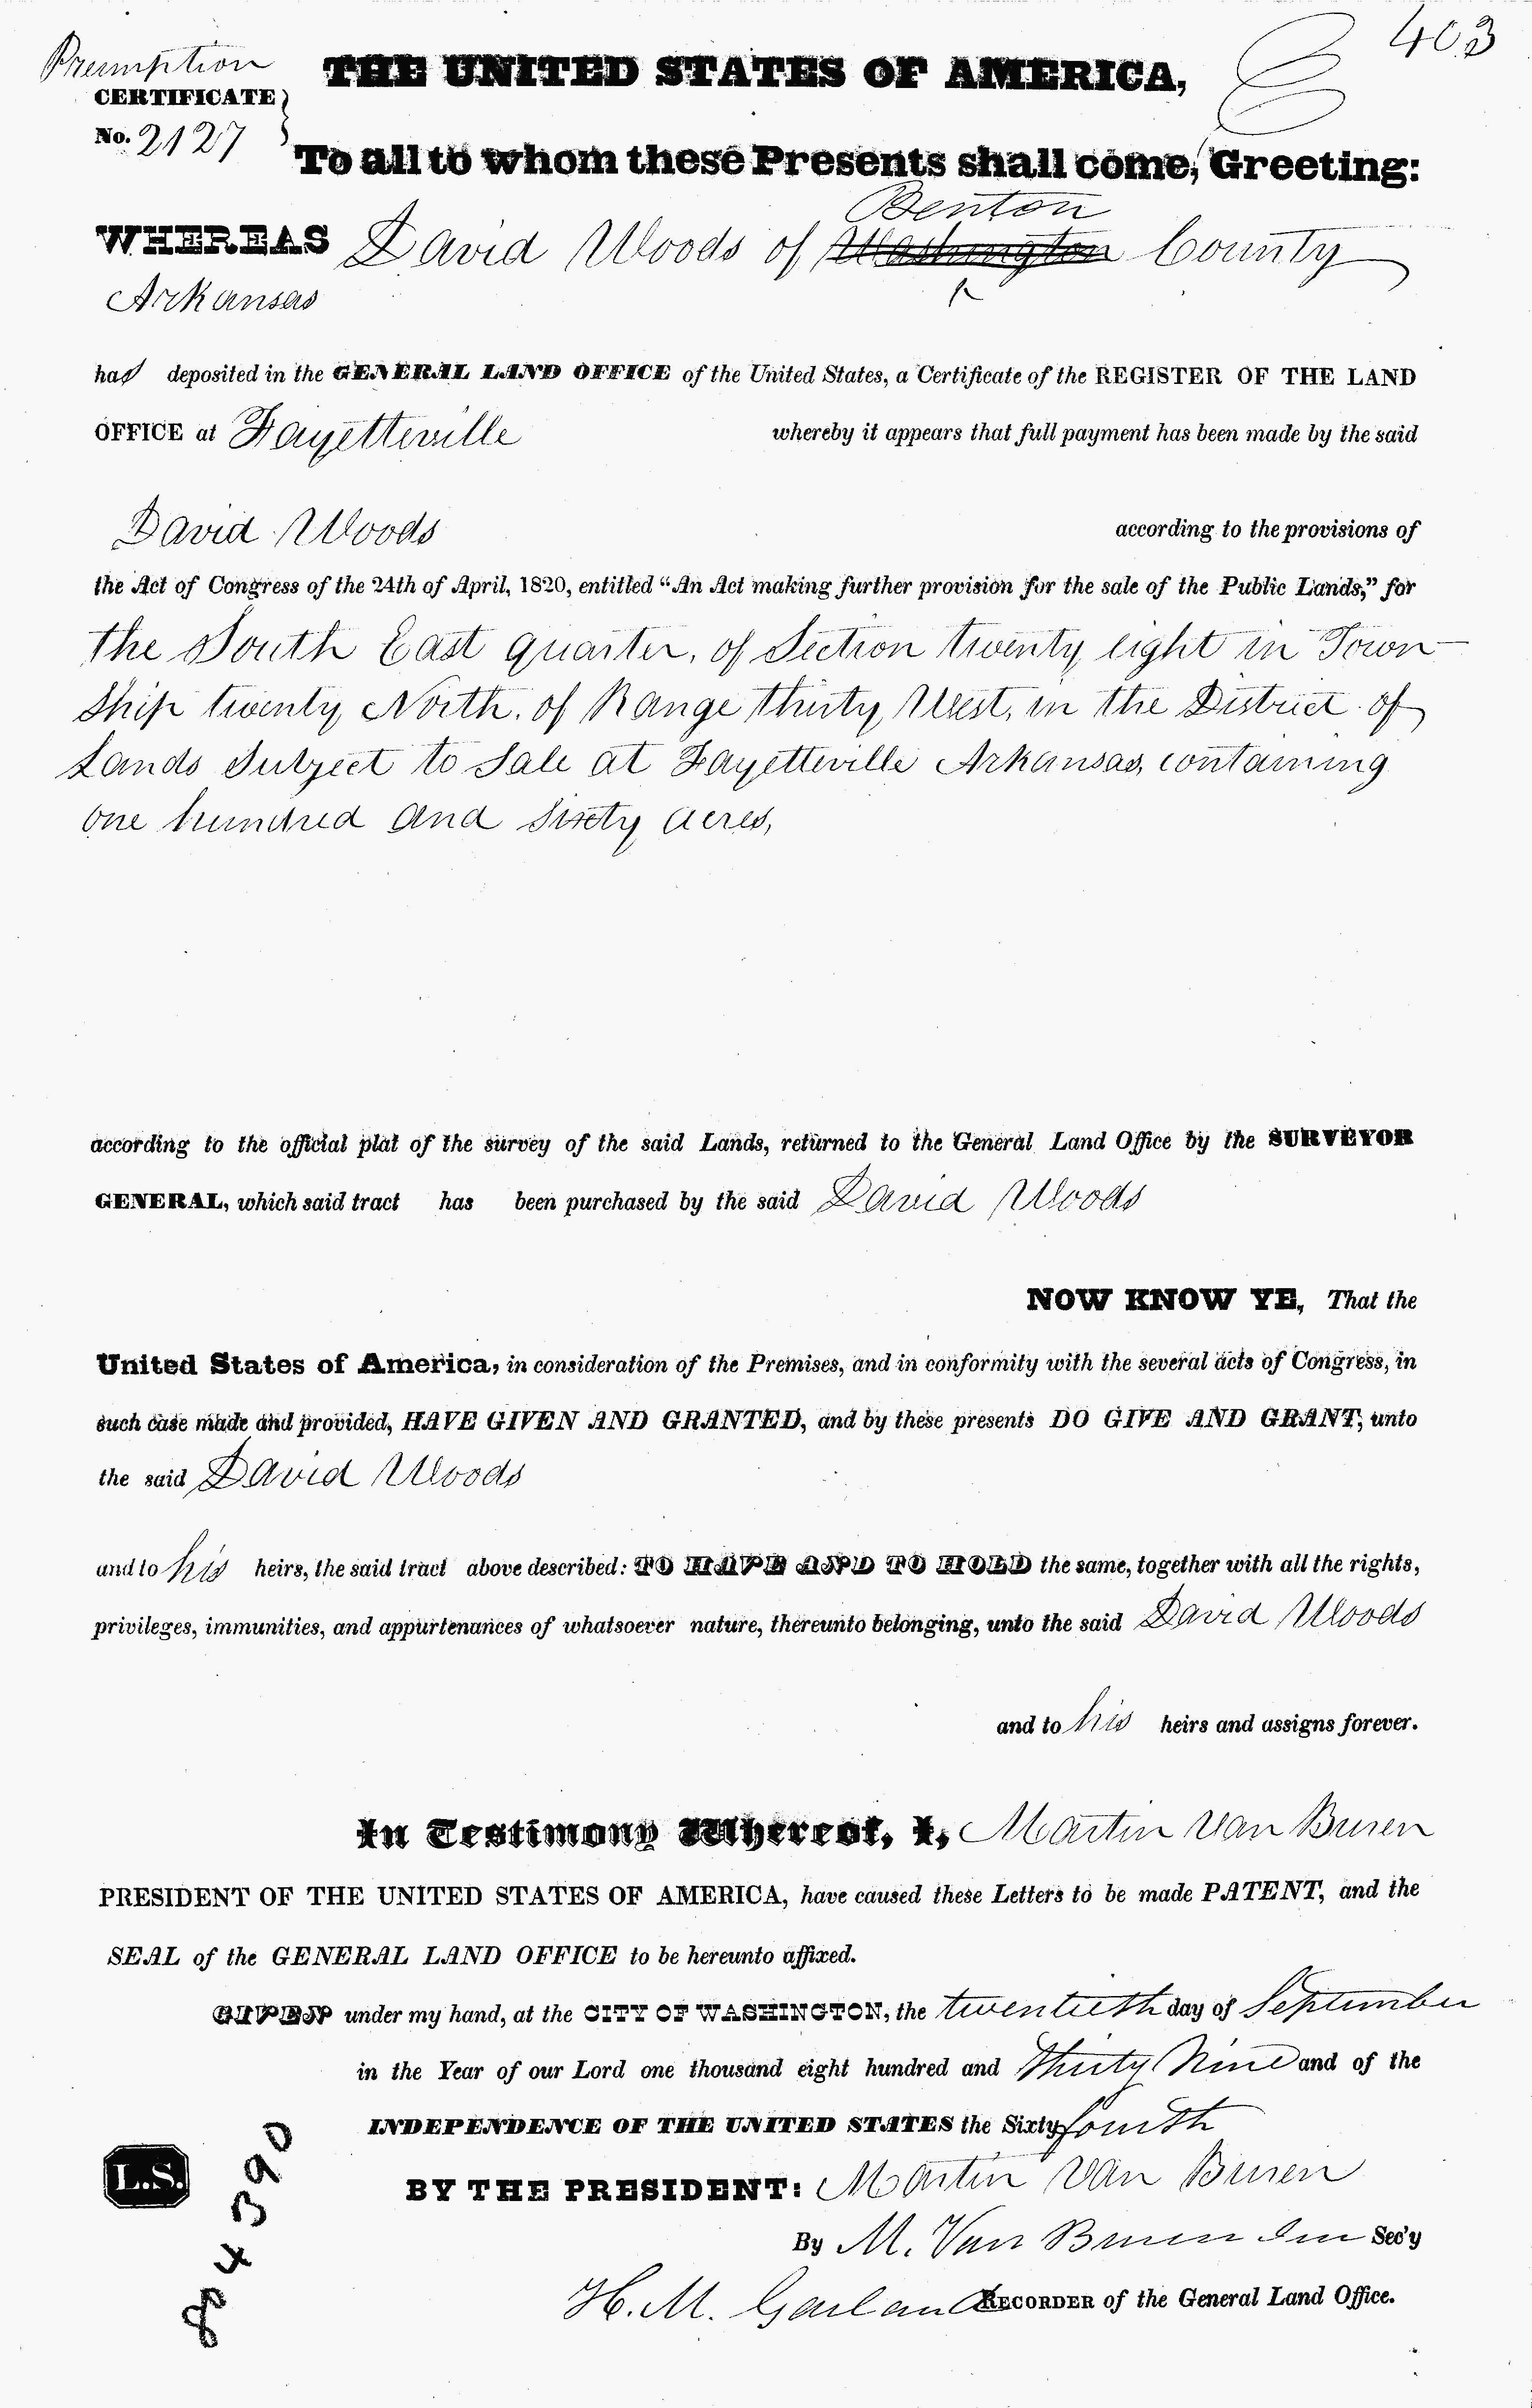 403
Preemption
CERTIFICATE
No. 2127
THE UNITED STATES OF AMERICA,
To all to whom these Presents shall come, Greeting:
Benton
WHEREAS David Woods of Washington County
Arkansas
has deposited in the GENERAL LAND OFFICE of the United States, a Certificate of the REGISTER OF THE LAND
OFFICE at Fayetteville whereby it appears that full payment has been made by the said
David Woods according to the provisions of
the Act of Congress of the 24th of April, 1820, entitled "An Act making further provision for the sale of the Public Lands," for
the South East quarter, of Section twenty eight in Town-
ship twenty North, of Range thirty West, in the District of
Lands Subject to Sale at Fayetteville Arkansas, containing
one hundred and sixty acres,
according to the official plat of the survey of the said Lands, returned to the General Land Office by the SURVEYOR
GENERAL, which said tract has been purchased by the said David Woods
NOW KNOW YE, That the
United States of America, in consideration of the Premises, and in conformity with the several acts of Congress, in
such case made and provided, HAVE GIVEN AND GRANTED, and by these presents DO GIVE AND GRANT, unto
the said David Woods
and to his heirs, the said tract above described: TO HAVE AND TO HOLD the same, together with all the rights,
privileges, immunities, and appurtenances of whatsoever nature, thereunto belonging, unto the said David Woods
and to his heirs and assigns forever.
In Testimony Whereof, I, Martin Van Buren
PRESIDENT OF THE UNITED STATES OF AMERICA, have caused these Letters to be made PATENT, and the
SEAL of the GENERAL LAND OFFICE to be hereunto affixed.
GIVEN under my hand, at the CITY OF WASHINGTON, the twentieth day of September
in the Year of our Lord one thousand eight hundred and thirty nine and of the
INDEPENDENCE OF THE UNITED STATES the Sixty fourth
L.S.
BY THE PRESIDENT: Martin Van Buren
By M. Van Buren Jun Sec'y
H. M. Garland RECORDER of the General Land Office.